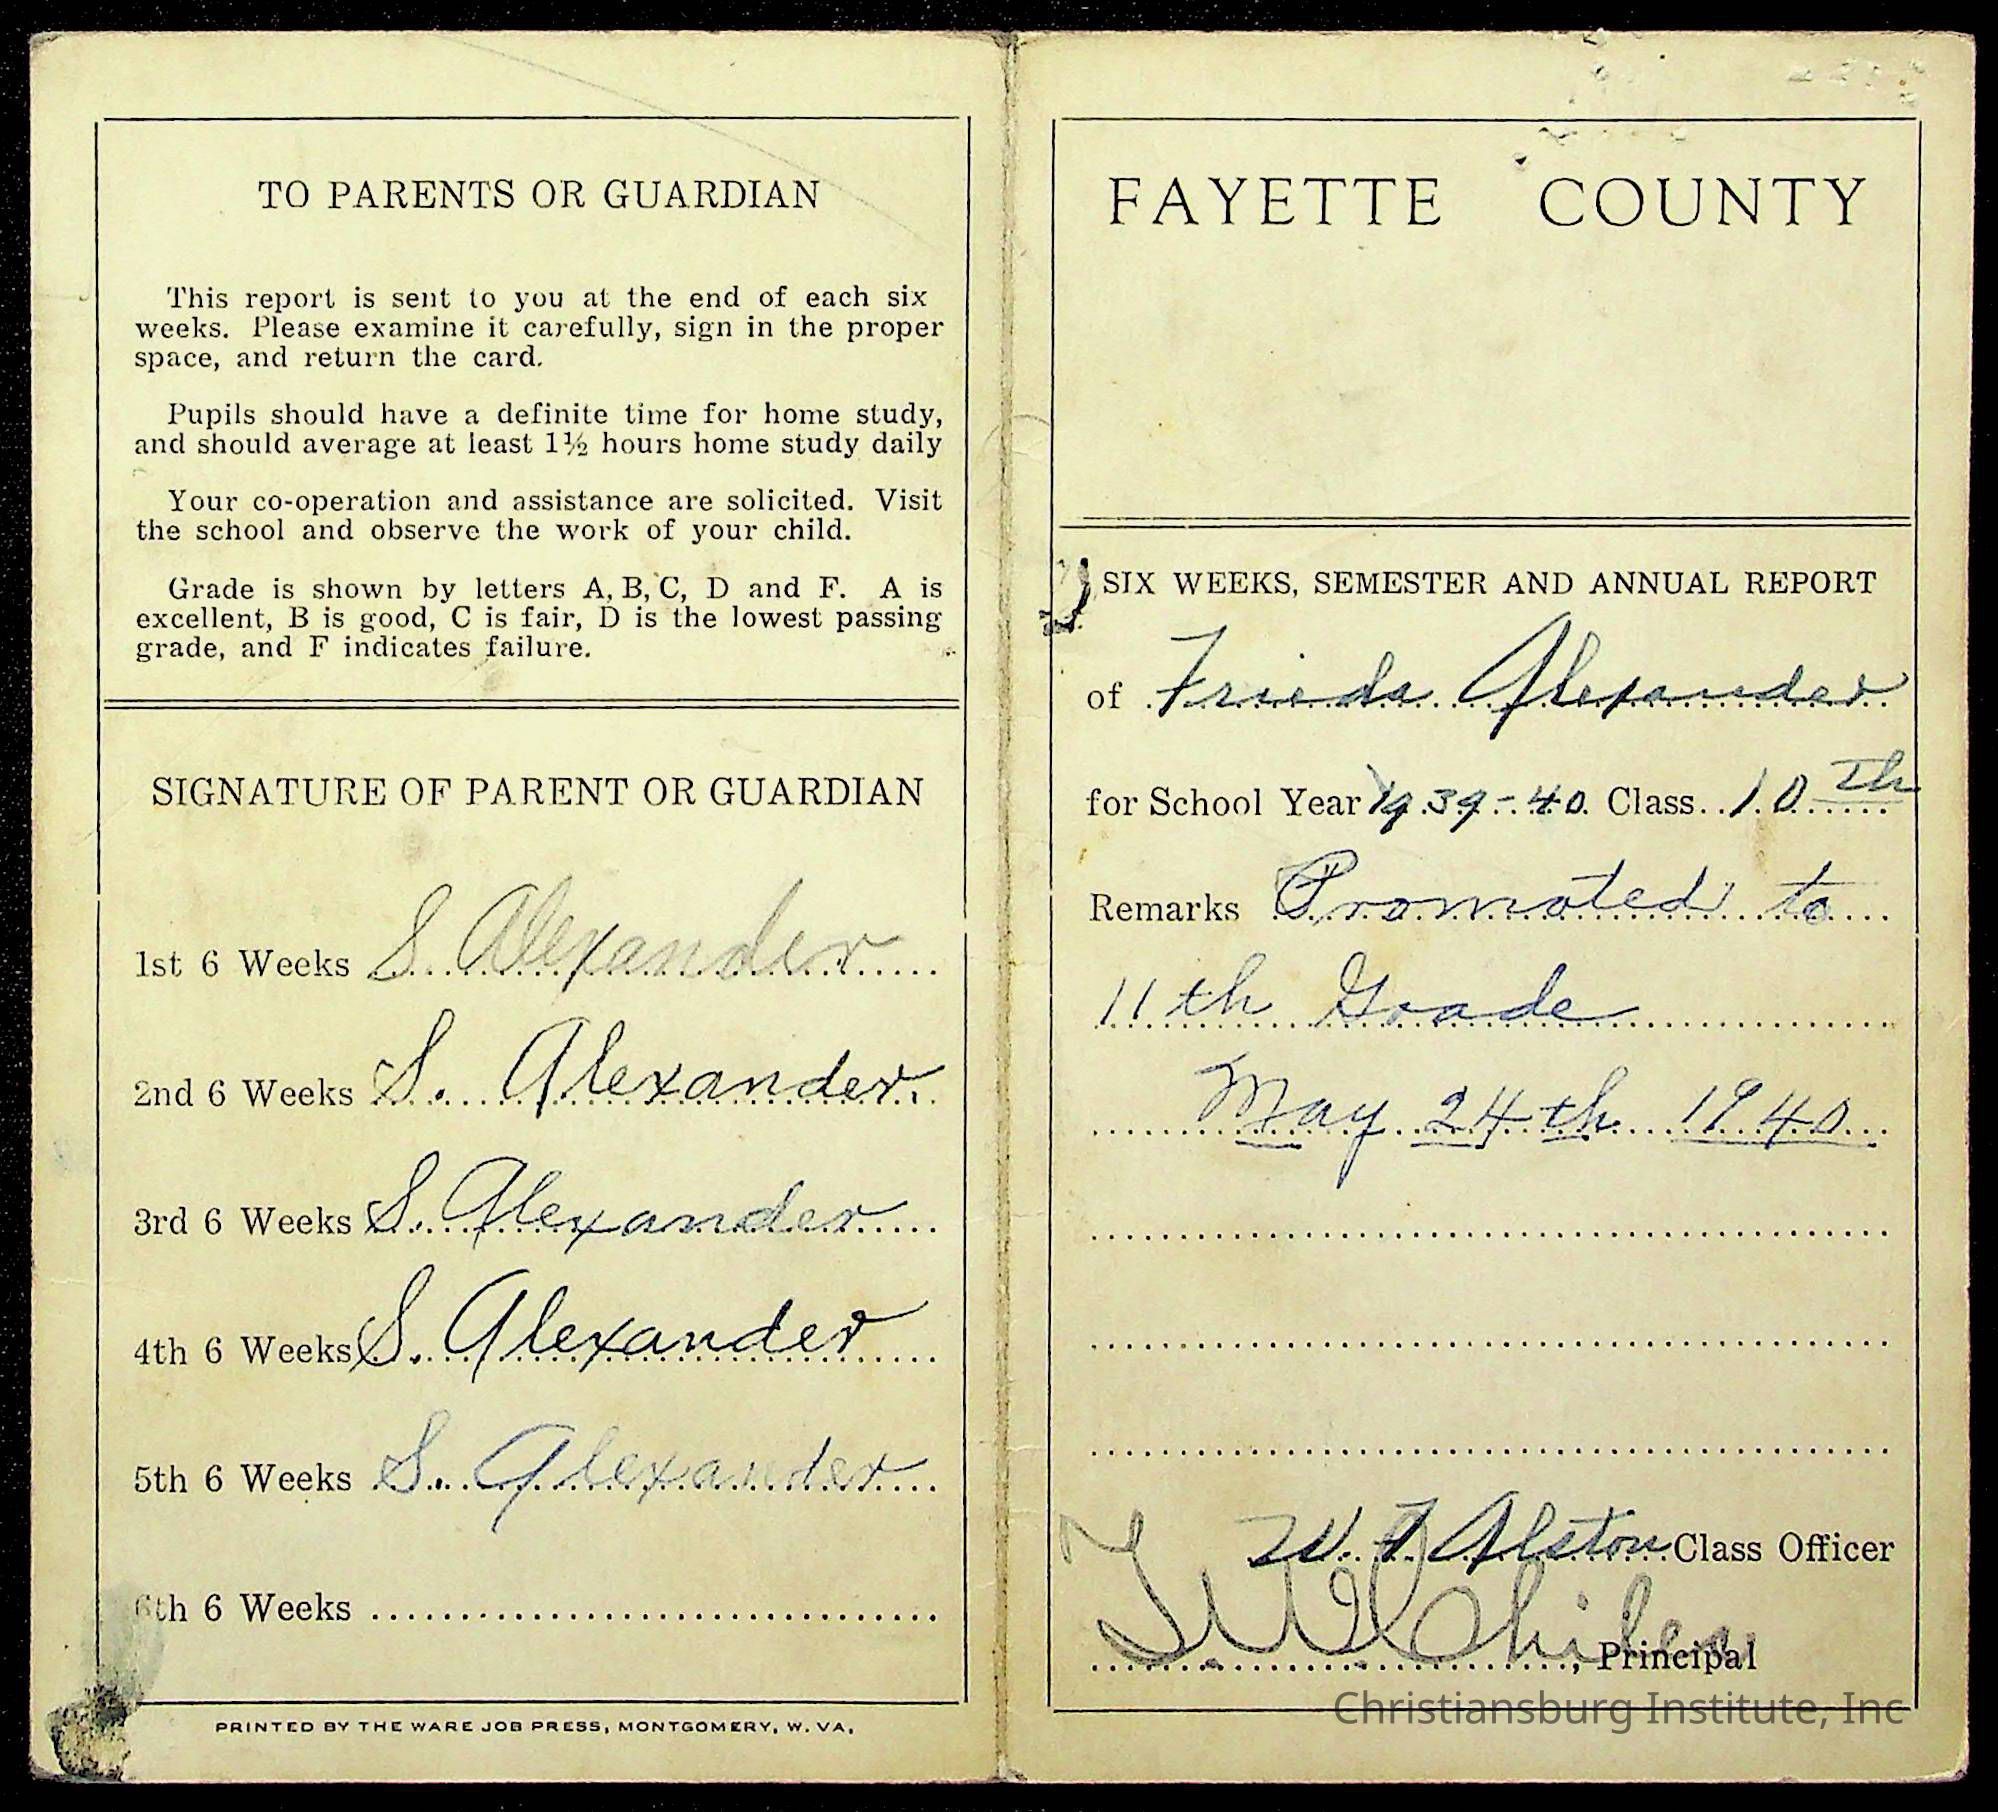 TO PARENTS OR GUARDIAN
This report is sent to you at the end of each six
weeks. Please examine it carefully, sign in the proper
space, and return the card.
Pupils should have a definite time for home study,
and should average at least 1½ hours home study daily
Your co-operation and assistance are solicited. Visit
the school and observe the work of your child.
Grade is shown by letters A, B, C, D and F. A is
excellent, B is good, C is fair, D is the lowest passing
grade, and F indicates failure.
SIGNATURE OF PARENT OR GUARDIAN
1st 6 Weeks S. Alexander
2nd 6 Weeks S. Alexander.
3rd 6 Weeks S. Alexander
4th 6 Weeks S. Alexander
5th 6 Weeks S. Alexander
6th 6 Weeks
PRINTED BY THE WARE JOB PRESS, MONTGOMERY, W. VA.
FAYETTE COUNTY
SIX WEEKS, SEMESTER AND ANNUAL REPORT
of Frieda Alexander
for School Year 1939-40 Class 10th
Remarks Promoted to
11th Grade
May 24th 1940
W. Alston Class Officer
, Principal
Christiansburg Institute, Inc